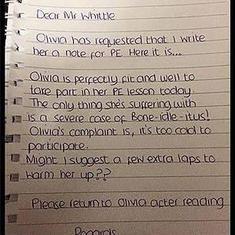 Dear Mr Whittle
Olivia has requested that I write
her a note for PE. Here it is...
Olivia is perfectly fit and well to
take part in her PE lesson today.
The only thing she's suffering with
is a severe case of Bone-idle-itus!
Olivia's complaint is, it's too cold to
participate.
Might I suggest a few extra laps to
warm her up??
Please return to Olivia after reading
Regards